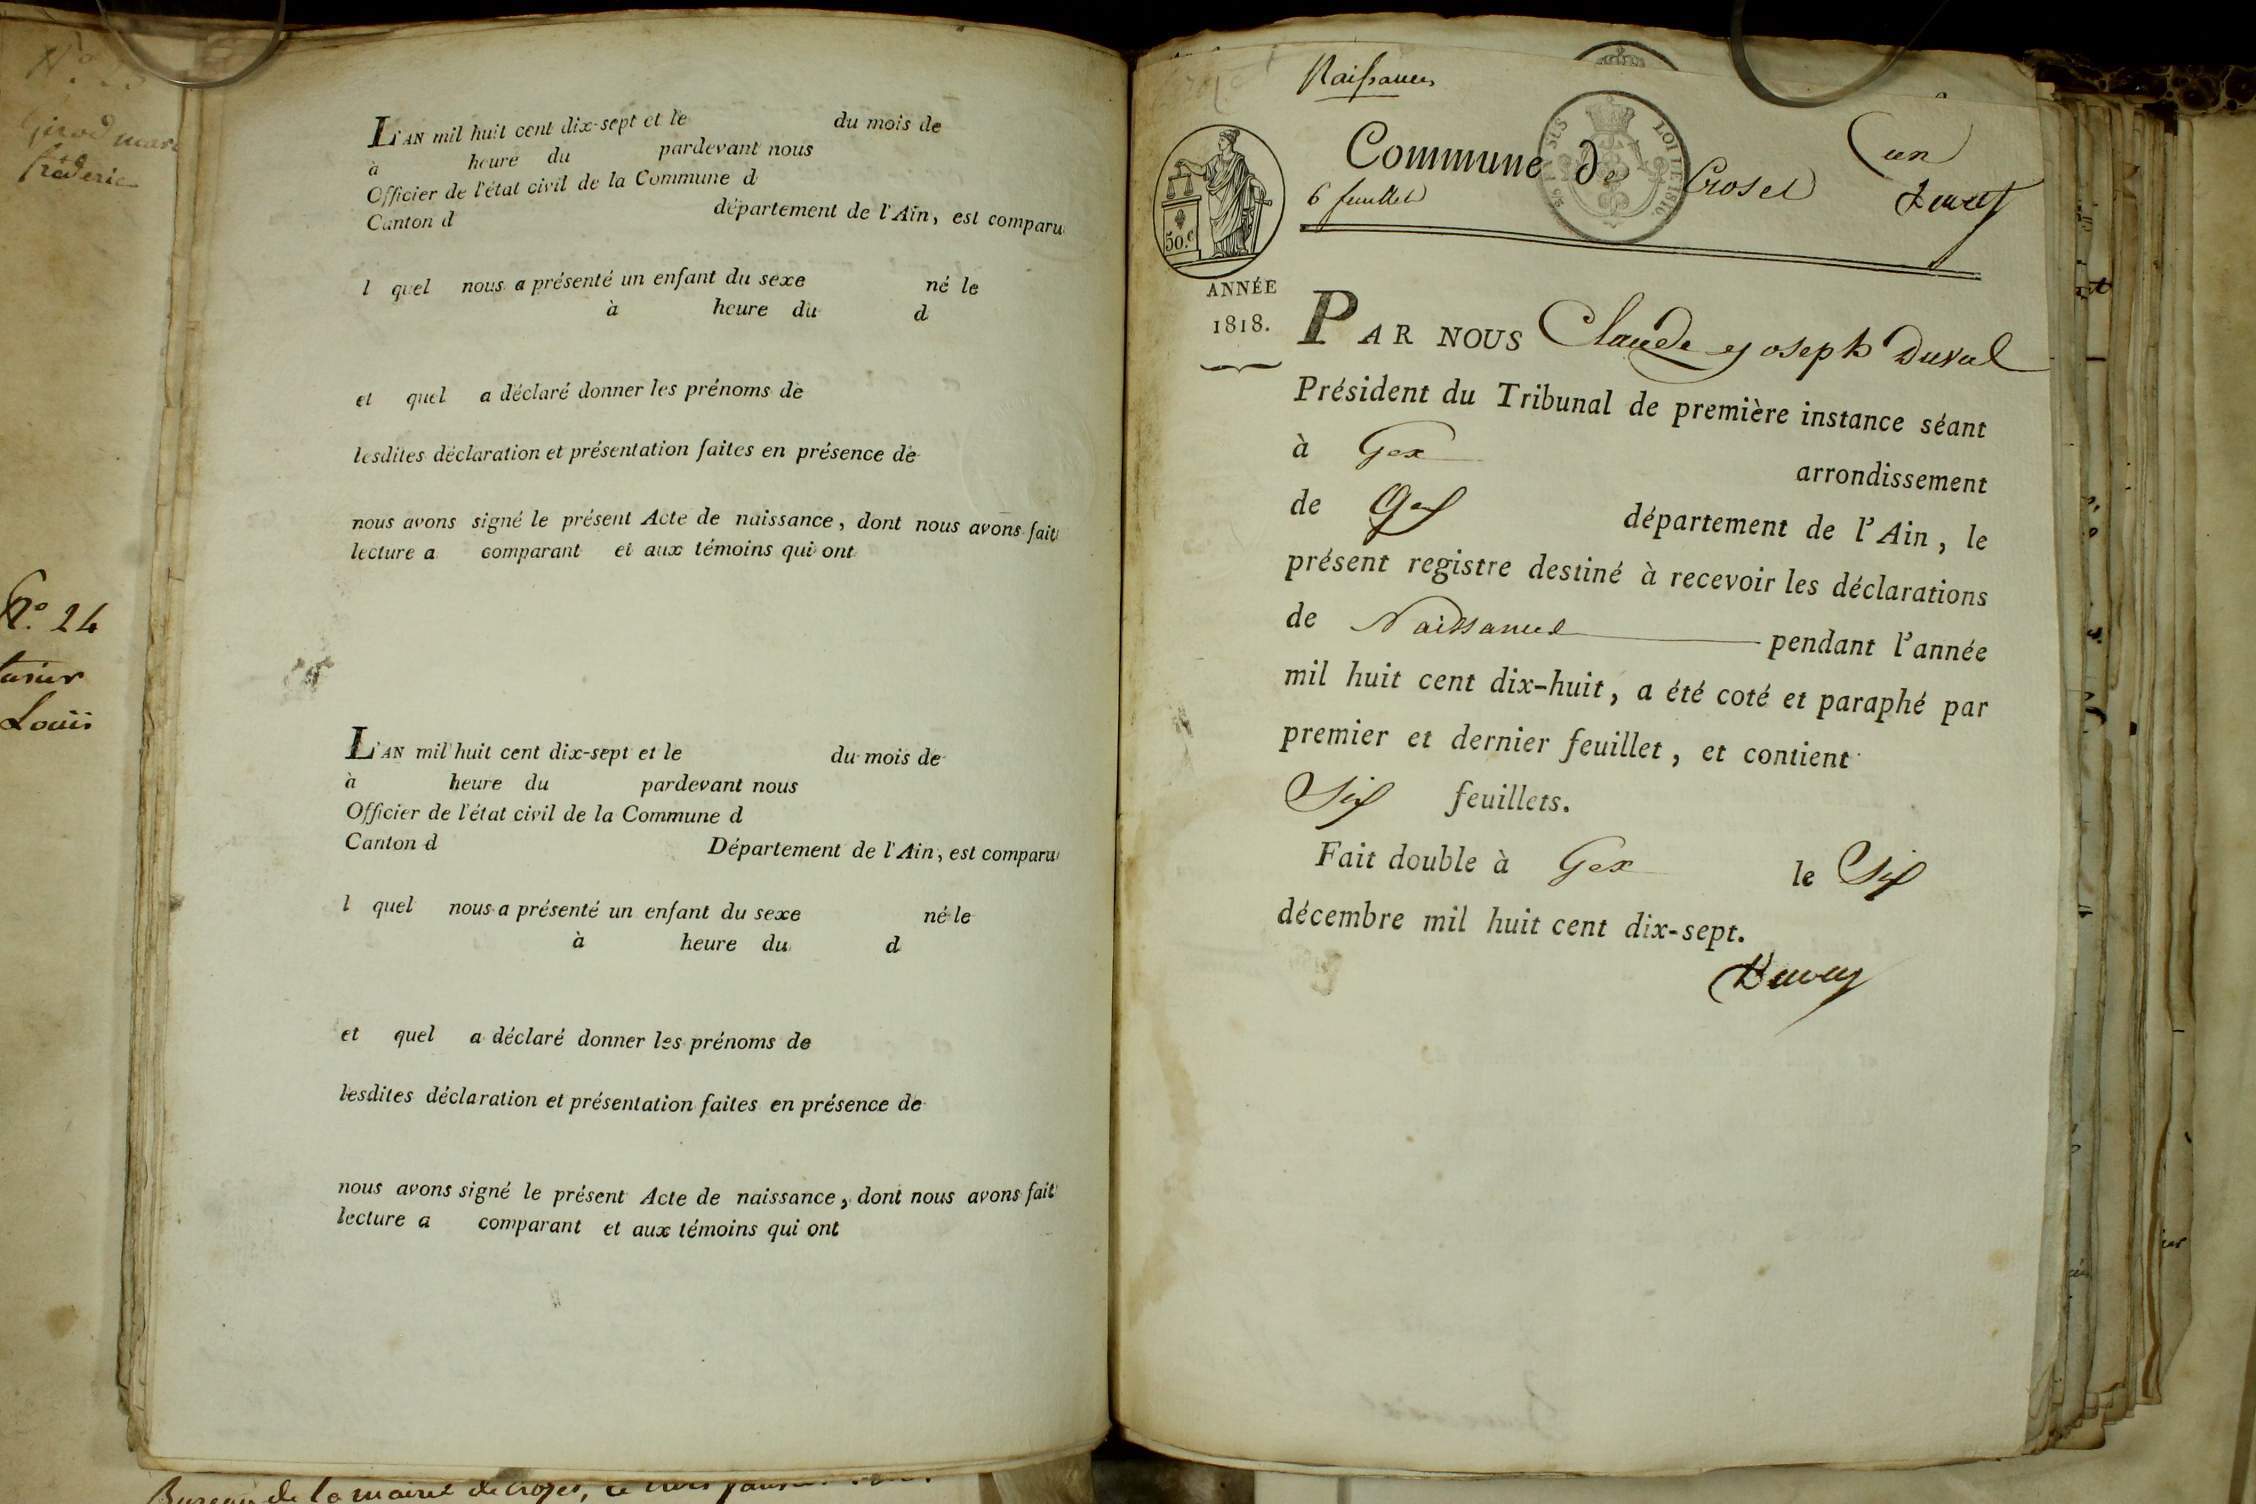 Girod
fréderic
N.° 24
Louis
L'AN mil huit cent dix-sept et le du mois de
à heure du pardevant nous
Officier de l'état civil de la Commune d
Canton d département de l'Ain, est comparu
l quel nous a présenté un enfant du sexe né le
à heure du d
et quel a déclaré donner les prénoms de
lesdites déclaration et présentation faites en présence de
nous avons signé le présent Acte de naissance, dont nous avons fait
lecture a comparant et aux témoins qui ont
L'AN mil huit cent dix-sept et le du mois de
à heure du pardevant nous
Officier de l'état civil de la Commune d
Canton d Département de l'Ain, est comparu
l quel nous a présenté un enfant du sexe né le
à heure du d
et quel a déclaré donner les prénoms de
lesdites déclaration et présentation faites en présence de
nous avons signé le présent Acte de naissance, dont nous avons fait
lecture a comparant et aux témoins qui ont
Bureau de la mairie de
Naissances
Commune de Croset un
6 feuillets
LOI DE 1816.
50.c
ANNÉE
1818.
PAR NOUS Claude Joseph Duval
Président du Tribunal de première instance séant
à Gex arrondissement
de Gex département de l'Ain, le
présent registre destiné à recevoir les déclarations
de Naissances pendant l'année
mil huit cent dix-huit, a été coté et paraphé par
premier et dernier feuillet, et contient
Six feuillets.
Fait double à Gex le Six
décembre mil huit cent dix-sept.
Duval